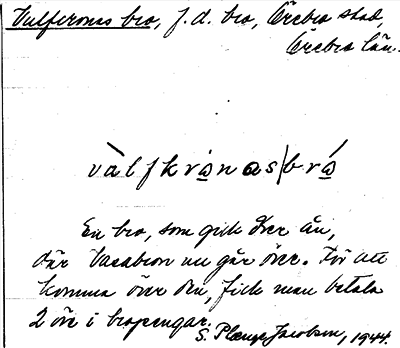 Valfrones bro, f.d. bro, Örebro stad,
Örebro län.
vàlfkrånɷs|brǻ
En bro, som gick över ån,
där Vasabron nu går över. För att
komma över den, fick man betala
2 öre i bropengar.
S. Plenge Jacobson, 1944.